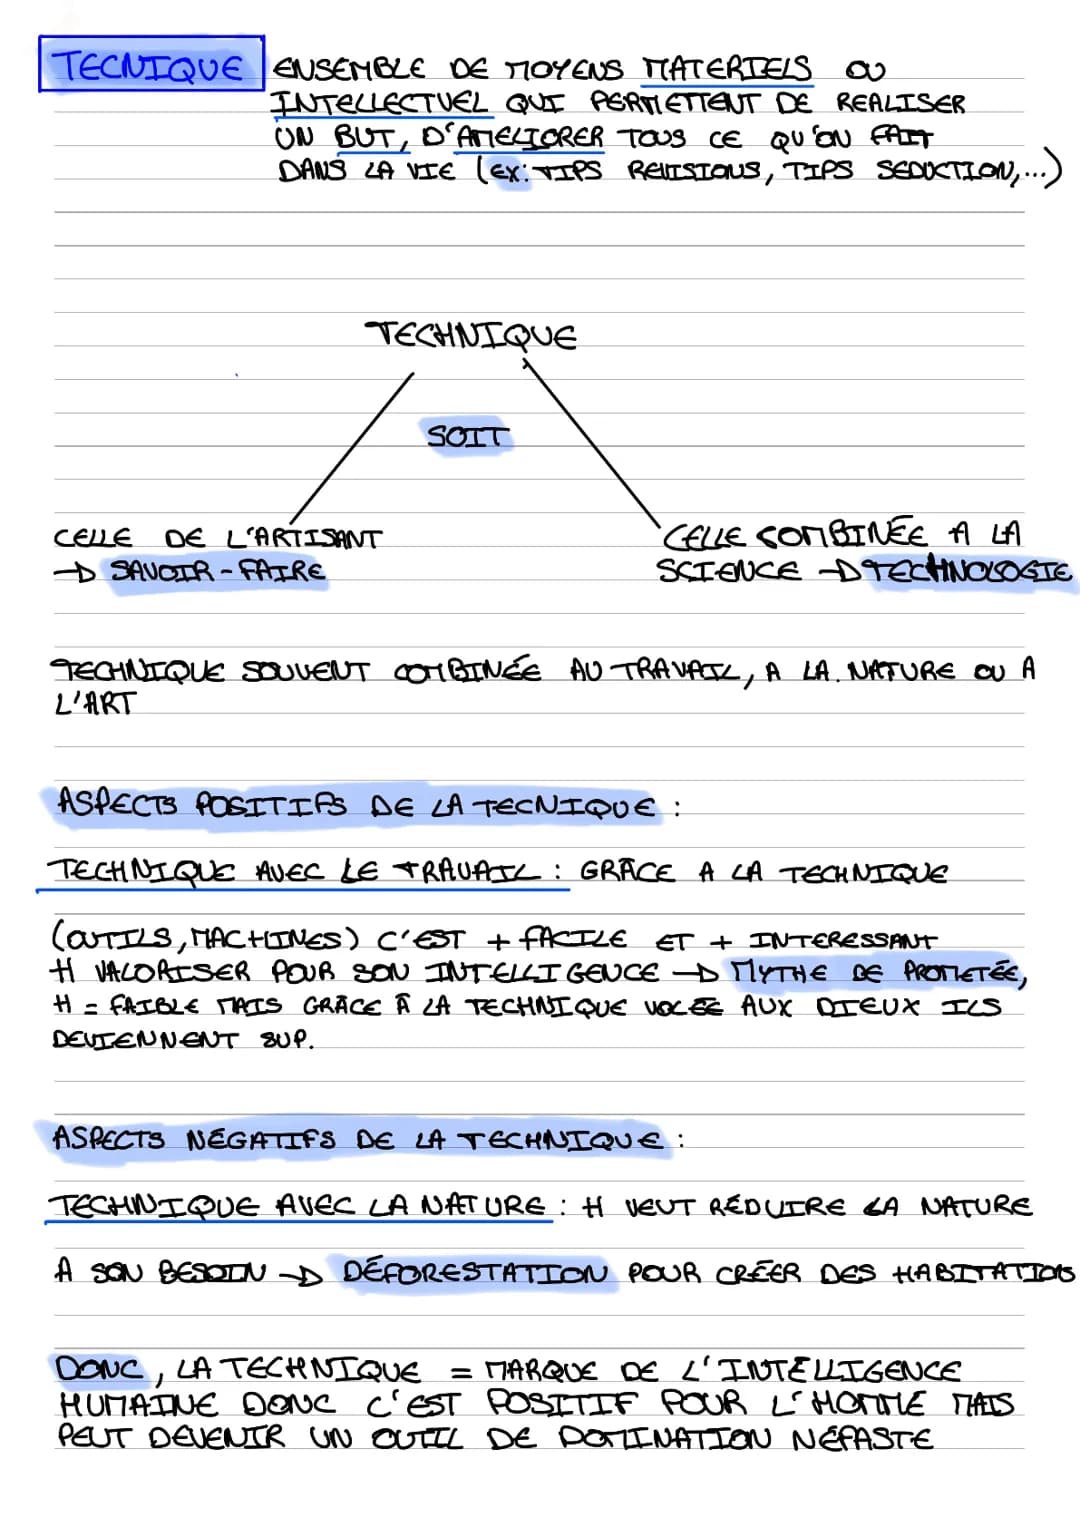 TECNIQUE ENSEMBLE DE MOYENS MATERIELS OU
INTELLECTUEL QUI PERMETTENT DE REALISER
UN BUT, D'AMELIORER TOUS CE QU'ON FAIT
DANS LA VIE (EX: TIPS REVISIONS, TIPS SEDUCTION,...)
TECHNIQUE
SOIT
CELLE DE L'ARTISANT
→ SAVOIR-FAIRE
CELLE COMBINÉE A LA
SCIENCE → TECHNOLOGIE
TECHNIQUE SOUVENT COMBINÉE AU TRAVAIL, A LA NATURE OU A
L'ART
ASPECTS POSITIFS DE LA TECNIQUE :
TECHNIQUE AVEC LE TRAVAIL : GRÂCE A LA TECHNIQUE
(OUTILS, MACHINES) C'EST + FACILE ET + INTERESSANT
H VALORISER POUR SON INTELLIGENCE → MYTHE DE PROMETÉE,
H = FAIBLE MAIS GRÂCE Â LA TECHNIQUE VOLÉE AUX DIEUX ILS
DEVIENNENT SUP.
ASPECTS NÉGATIFS DE LA TECHNIQUE :
TECHNIQUE AVEC LA NATURE : H VEUT RÉDUIRE LA NATURE
A SON BESOIN → DÉFORESTATION POUR CRÉER DES HABITATIONS
DONC, LA TECHNIQUE = MARQUE DE L'INTELLIGENCE
HUMAINE DONC C'EST POSITIF POUR L'HOMME MAIS
PEUT DEVENIR UN OUTIL DE DOMINATION NÉFASTE